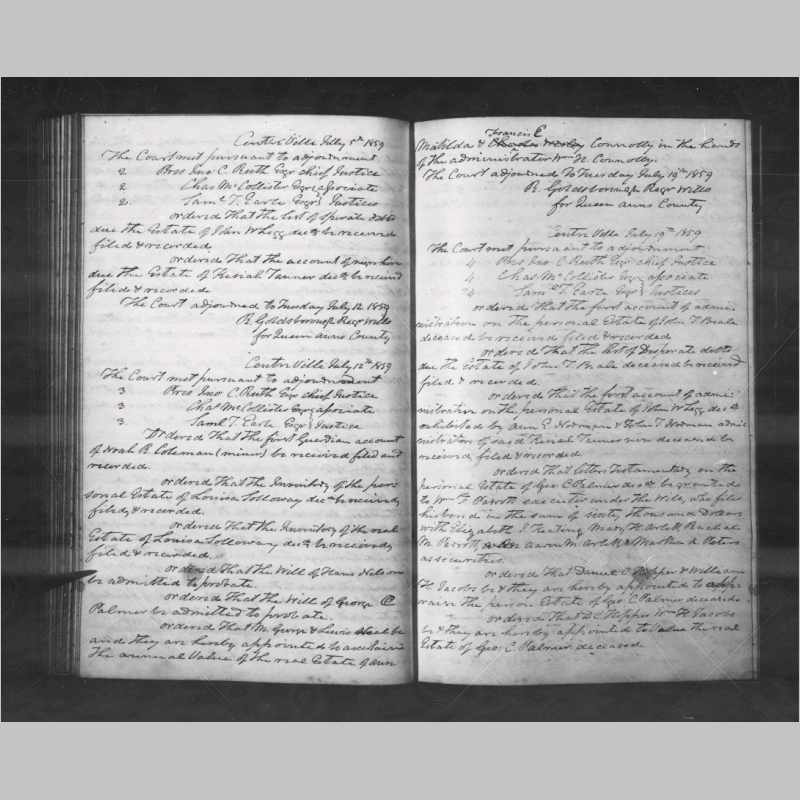 Centre Ville July 5th 1859
The Court met pursuant to adjournment
2 Pres Jno C. Ruth Esqr chief Justice
2 Chas McCollister Esqr } associate
2. Saml T. Earle Esqr } Justices
ordered that the list of Sperate debts
due the Estate of John Whegg decd be received
filed & recorded
ordered that the account of
due the Estate of Kesiah Tanner decd be received
filed & recorded
The Court adjourned to Tuesday July 12 1859
R. Goldsborough Regr Wills
for Queen anns County
Centre Ville July 12th 1859
The Court met pursuant to adjournment
3 Pres Jno C. Ruth Esqr chief Justice
3 Chas McCollister Esqr } associate
3. Saml T. Earle Esqr } Justice
Ordered that the first Guardian account
of Noah R. Coleman (minor) be received filed and
recorded.
ordered that the Inventory of the per
sonal Estate of Louisa Solloway decd be received,
filed, & recorded.
ordered that the Inventory of the real
Estate of Louisa Solloway decd be received,
filed & recorded.
ordered that the Will of Hans Nelson
be admitted to probate.
ordered that the Will of George C
Palmer be admitted to probate.
ordered that M. George & Lewis be
and they are hereby appointed to ascertain
the annual Value of the real Estate of ann
Francis E
Matilda & Connolly in the hands
of the administrator Wm N Connolly.
The Court adjourned to Tuesday July 19th 1859
R. Goldsborough Regr Wills
for Queen anns County
Centre Ville July 19th 1859
The Court met pursuant to adjournment
4 Pres Jno C. Ruth Esqr chief Justice
4 Chas McCollister Esqr } associate
4 Saml T. Earle Esqr } Justices
ordered that the first account of admi
nistration on the personal Estate of John T Beale
deceased be received filed & recorded
ordered that the list of Desperate debts
due the Estate of John T. Beale deceased be received
filed & recorded.
ordered that the first account of admi
nistration on the personal Estate of John Whegg decd
exhibited by ann E. Norman & John T Norman admi
nistrators of said Kesiah Tanner now deceased be
received, filed & recorded.
ordered that letters Testamentary on the
personal Estate of Geo C Palmer decd be granted
to Wm F Parrott executor under the Will, who filed
his bond in the sum of sixty thousand Dollars
with Elizabeth J. Keating Mary
M. Parrott, M. & Martha A Peters
as securities.
ordered that Daniel C. Hopper & William
H. Jacobs be & they are hereby appointed to appr
raise the person Estate of Geo. C Palmer deceasd.
ordered that D C Hopper Wm H Jacobs
be & they are hereby appointed to Value the real
Estate of Geo: C. Palmer deceased